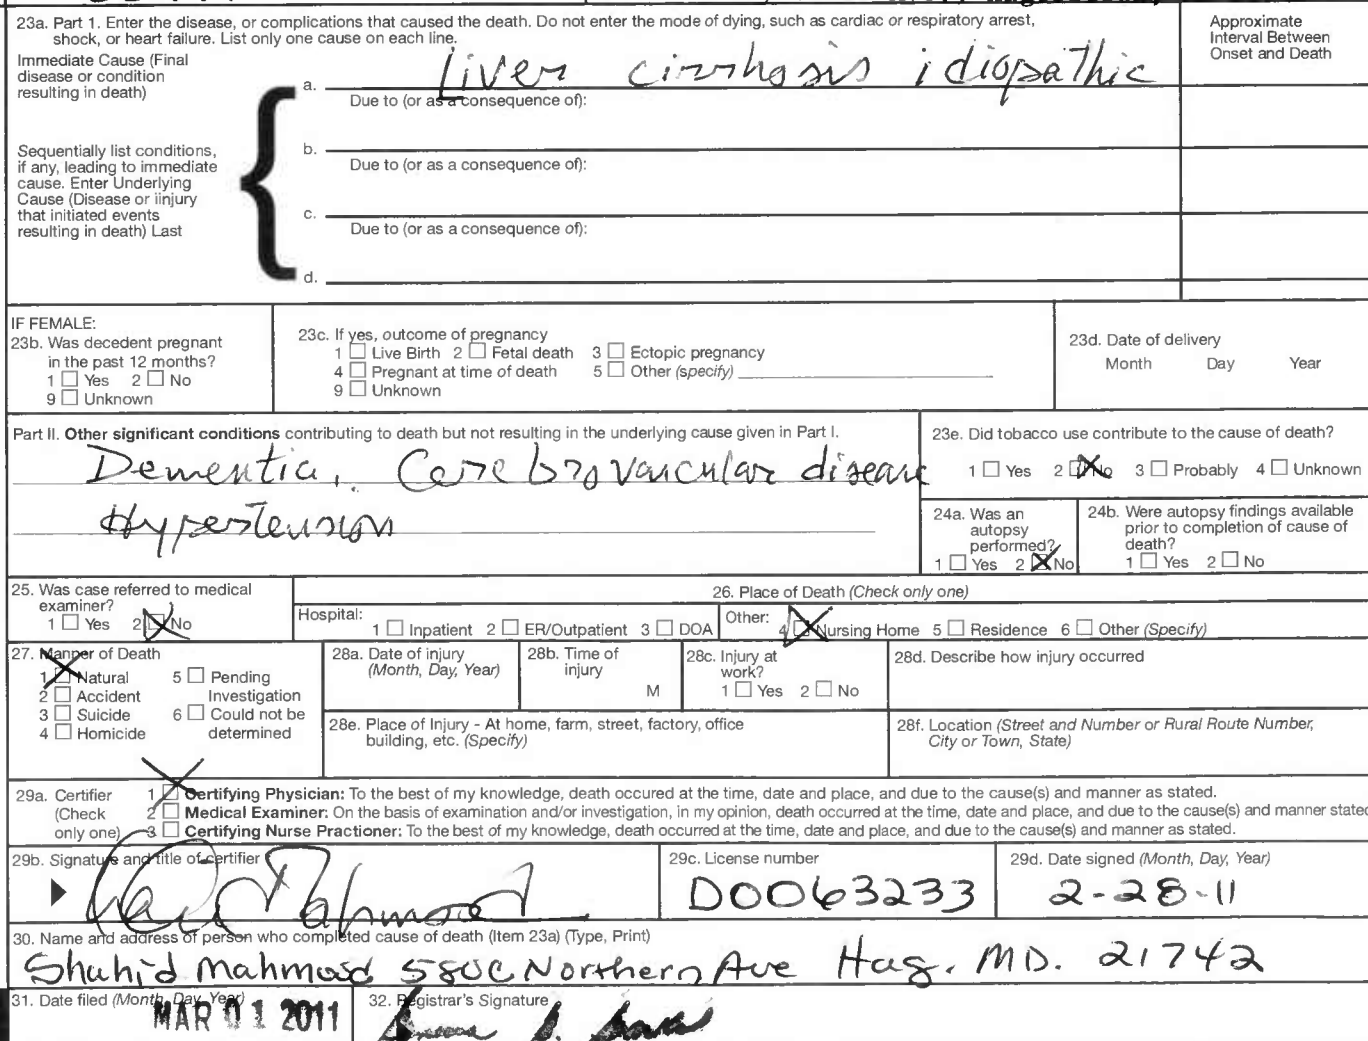 23a. Part 1. Enter the disease, or complications that caused the death. Do not enter the mode of dying, such as cardiac or respiratory arrest,
shock, or heart failure. List only one cause on each line.
Approximate
Interval Between
Onset and Death
Immediate Cause (Final
disease or condition
resulting in death)
a. Liver cirrhosis idiopathic
Due to (or as a consequence of):
Sequentially list conditions,
if any, leading to immediate
cause. Enter Underlying
Cause (Disease or iinjury
that initiated events
resulting in death) Last
b.
Due to (or as a consequence of):
c.
Due to (or as a consequence of):
d.
IF FEMALE:
23b. Was decedent pregnant
in the past 12 months?
1 Yes 2 No
9 Unknown
23c. If yes, outcome of pregnancy
1 Live Birth 2 Fetal death 3 Ectopic pregnancy
4 Pregnant at time of death 5 Other (specify)
9 Unknown
23d. Date of delivery
Month Day Year
Part II. Other significant conditions contributing to death but not resulting in the underlying cause given in Part I.
Dementia, Cerebrovascular disease
Hypertension
23e. Did tobacco use contribute to the cause of death?
1 Yes 2 No 3 Probably 4 Unknown
24a. Was an
autopsy
performed?
1 Yes 2 No
24b. Were autopsy findings available
prior to completion of cause of
death?
1 Yes 2 No
25. Was case referred to medical
examiner?
1 Yes 2 No
26. Place of Death (Check only one)
Hospital: 1 Inpatient 2 ER/Outpatient 3 DOA
Other: 4 Nursing Home 5 Residence 6 Other (Specify)
27. Manner of Death
1 Natural 5 Pending
2 Accident Investigation
3 Suicide 6 Could not be
4 Homicide determined
28a. Date of injury
(Month, Day, Year)
28b. Time of
injury
M
28c. Injury at
work?
1 Yes 2 No
28d. Describe how injury occurred
28e. Place of Injury - At home, farm, street, factory, office
building, etc. (Specify)
28f. Location (Street and Number or Rural Route Number,
City or Town, State)
29a. Certifier
(Check
only one)
1 Certifying Physician: To the best of my knowledge, death occured at the time, date and place, and due to the cause(s) and manner as stated.
2 Medical Examiner: On the basis of examination and/or investigation, in my opinion, death occurred at the time, date and place, and due to the cause(s) and manner stated
3 Certifying Nurse Practioner: To the best of my knowledge, death occurred at the time, date and place, and due to the cause(s) and manner as stated.
29b. Signature and title of certifier
Mahmood
29c. License number
D0063233
29d. Date signed (Month, Day, Year)
2-28-11
30. Name and address of person who completed cause of death (Item 23a) (Type, Print)
Shahid Mahmood 580C Northern Ave Hag. MD. 21742
31. Date filed (Month, Day, Year)
MAR 01 2011
32. Registrar's Signature